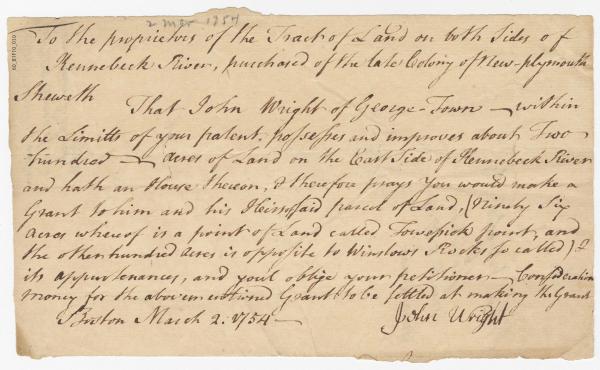 2 Mar 1754
To the proprietors of the Tract of Land on both Sides of
Kennebeck River, purchased of the late Colony of New-plymouth
Sheweth
That John Wright of George-Town — within
the Limitts of your patent, possesses and improves about Two
hundred — acres of Land on the East Side of Kennebeck River
and hath an House thereon, & therefore prays You would make a
Grant to him and his Heirs said parcel of Land, (Ninety Six
Acres whereof is a point of Land called Towesick point, and
the other hundred acres is opposite to Winslows Rocks so called)
its appurtenances, and you'l oblige your petitioner — Consideration
money for the abovementioned Grant to be settled at making the Grant
Boston March 2. 1754 —
John Wright